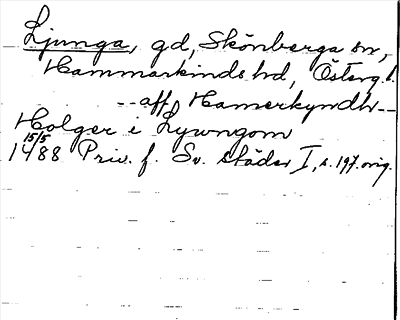 Ljunga, gd, Skönberga sn,
Hammarkinds hd, Österg. l.
-- aff Hamerkyndh --
Holger i Lywngom
15/5
1488 Priv. f. Sv. städer I, s. 197. orig.